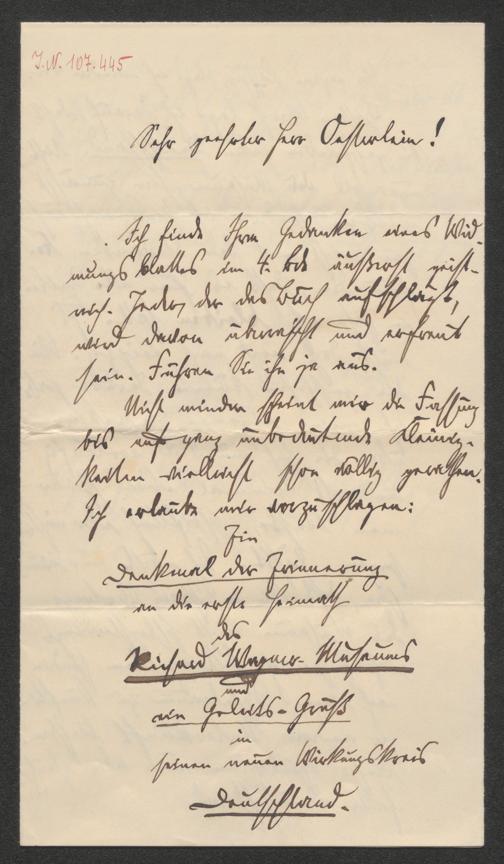 I.N. 107.445
Sehr geehrter Herr Oesterlein!
Ich finde Ihren Gedanken eines Wid-
mungsblattes im 4. Bde äußerst geist-
reich. Jeder, der das Buch aufschlägt,
wird davon überrascht und erfreut
sein. Führen Sie ihn ja aus.
Nicht minder scheint mir die Fassung
bis auf ganz unbedeutende Kleinig-
keiten vielleicht schon völlig gerathen.
Ich erlaube mir vorzuschlagen:
Ein
Denkmal der Erinnerung
an die erste Heimath
des
Richard Wagner-Museums
und
ein Geleits-Gruß
in
seinen neuen Wirkungskreis
Deutschland.